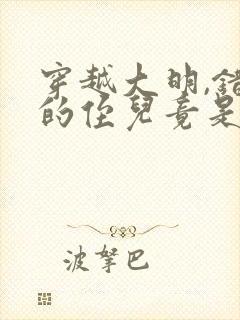 穿越大明,錯
的侄兒竟是
波拏巴